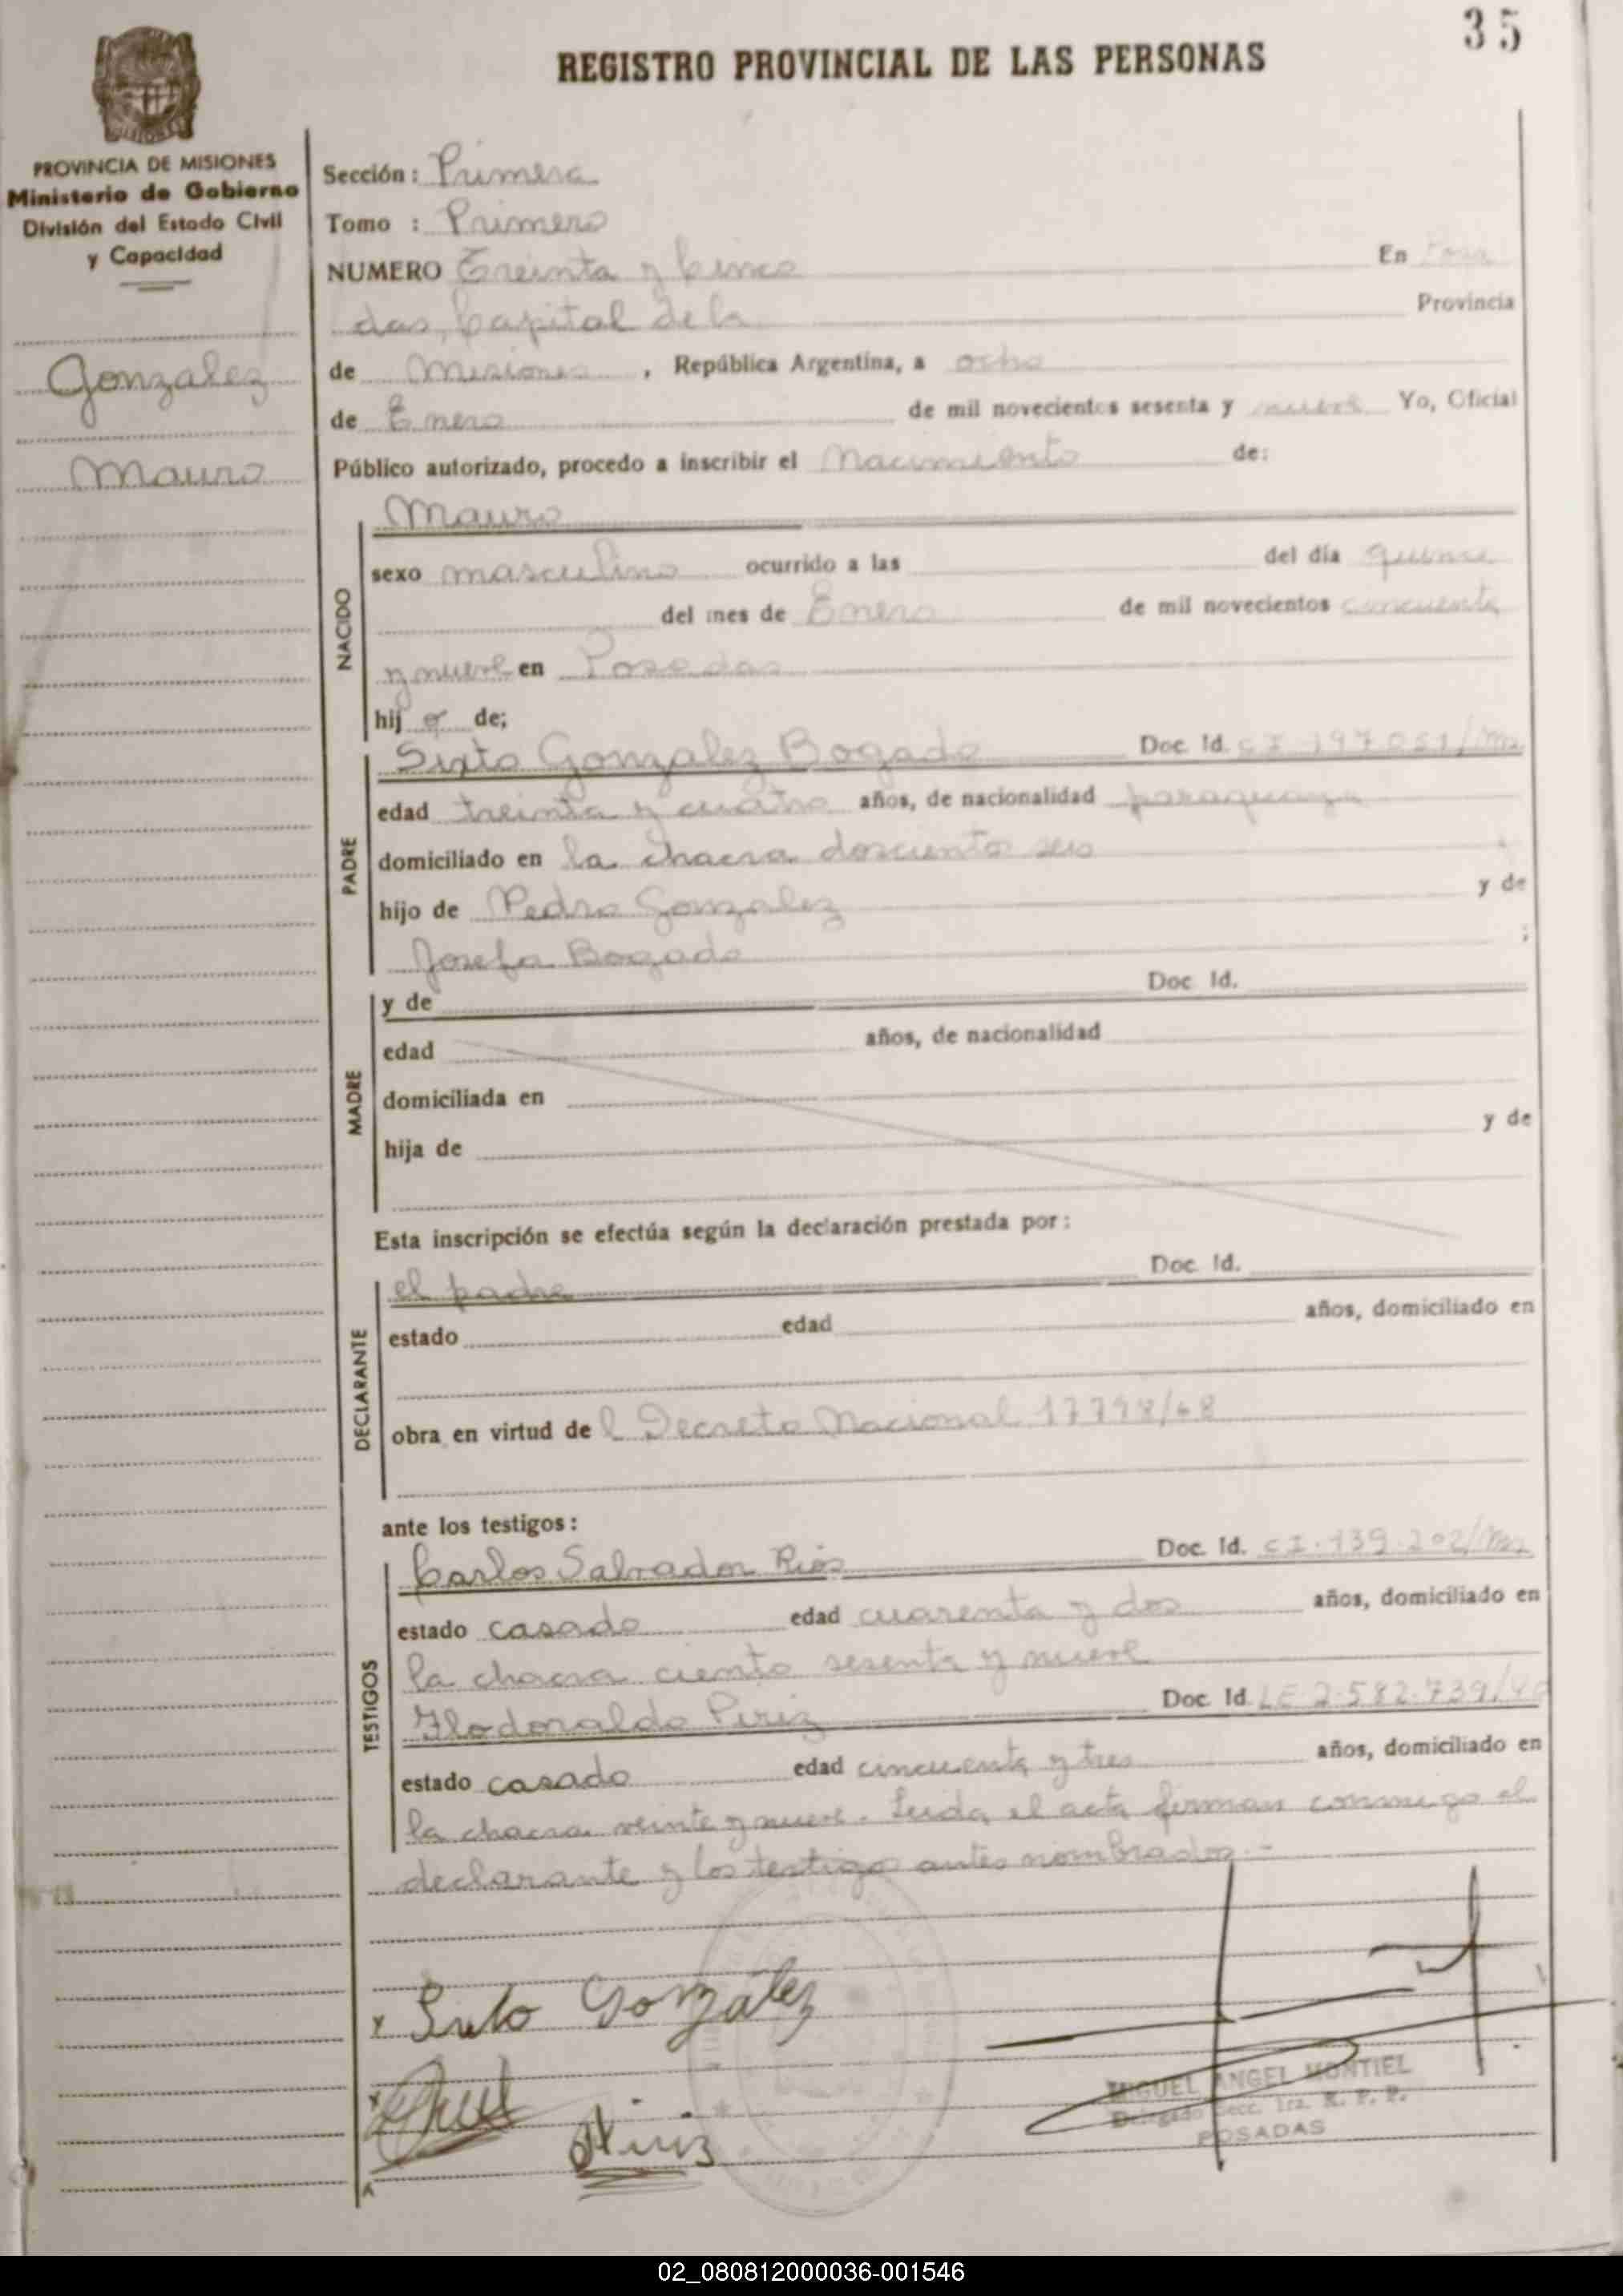 35
REGISTRO PROVINCIAL DE LAS PERSONAS
PROVINCIA DE MISIONES
Ministerio de Gobierno
División del Estado Civil
y Capacidad
Gonzalez
Mauro
Sección: Primera
Tomo : Primero
NUMERO Treinta y Cinco En Posa
das, Capital de la Provincia
de Misiones, República Argentina, a ocho
de Enero de mil novecientos sesenta y nueve Yo, Oficial
Público autorizado, procedo a inscribir el Nacimiento de:
NACIDO
Mauro
sexo masculino ocurrido a las del día quince
del mes de Enero de mil novecientos cincuenta
y nueve en Posadas
hijo de;
PADRE
Sixto Gonzalez Bogado Doc. Id. CI 197.051/Ms
edad treinta y cuatro años, de nacionalidad paraguaya
domiciliado en la chacra doscientos seis
hijo de Pedro Gonzalez y de
Josefa Bogado ;
MADRE
y de Doc. Id.
edad años, de nacionalidad
domiciliada en
hija de y de
Esta inscripción se efectúa según la declaración prestada por:
DECLARANTE
el padre Doc. Id.
estado edad años, domiciliado en
obra en virtud del Decreto Nacional 17798/68
ante los testigos:
TESTIGOS
Carlos Salvador Rios Doc. Id. CI.139.202/Ms
estado casado edad cuarenta y dos años, domiciliado en
la chacra ciento sesenta y nueve
Flodoraldo Piriz Doc. Id. LE 2.582.739/
estado casado edad cincuenta y tres años, domiciliado en
la chacra veinte y nueve. Leida el acta firman conmigo el
declarante y los testigo antes nombrados.-
x Sixto González
Piriz
MIGUEL ANGEL MONTIEL
Delegado Secc. 1ra. R. P. P.
POSADAS
02_080812000036-001546